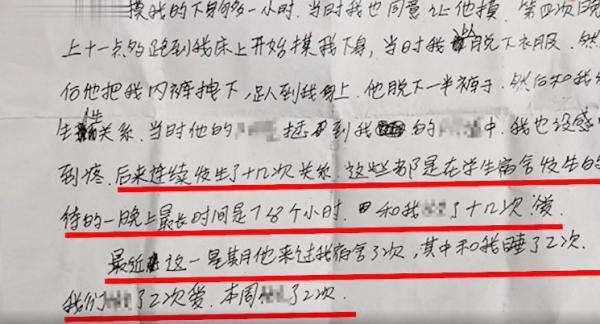 摸我的下身的多一小时,当时我也同意让他摸.第四次晚
上十一点多跑到我床上开始摸我下身,当时我 脱下衣服.然
后他把我内裤拽下,趴到我身上.他脱下一半裤子.然后和我
生性关系.当时他的 到我 的 中.我也没感
到疼.后来连续发生了十几次关系.这些都是在学生宿舍发生的
待的一晚上最长时间是7 8个小时. 和我 了十几次爱.
最近这一星期他来过我宿舍了次,其中和我睡了2次.
我们 了2次爱.本周 了2次.